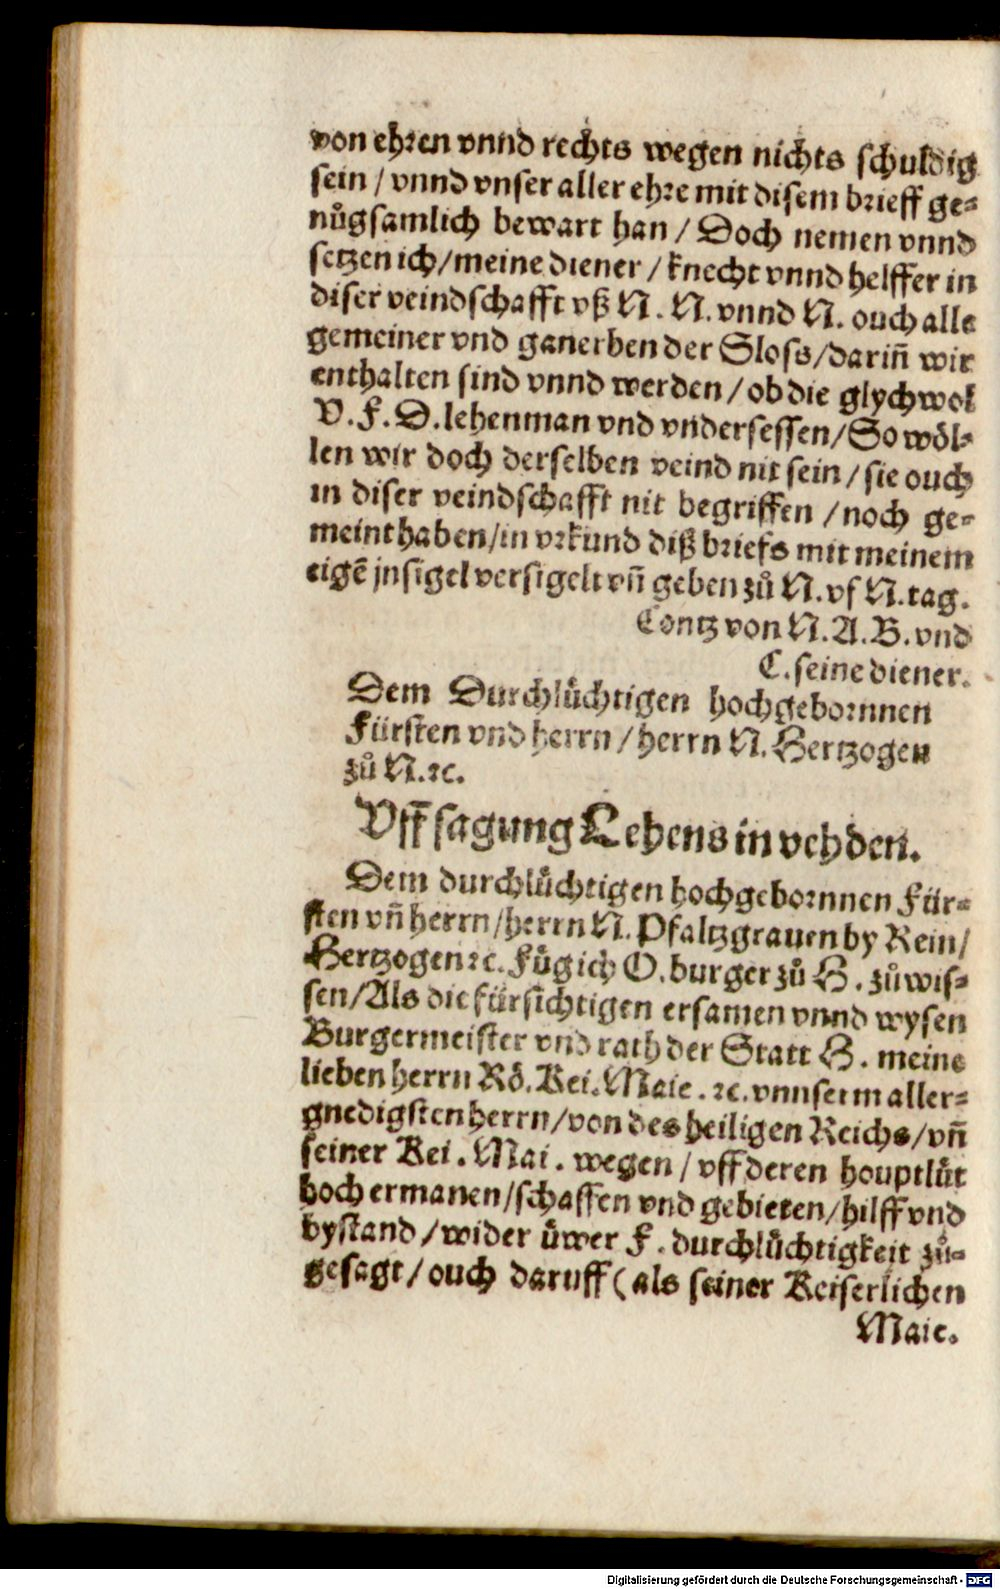 von ehren vnnd rechts wegen nichts schuldig
sein / vnnd vnser aller ehre mit disem brieff ge-
nuͦgsamlich bewart han / Doch nemen vnnd
setzen ich/meine diener / knecht vnnd helffer in
diser veindschafft vß N. N. vnnd N. ouch alle
gemeiner vnd ganerben der Sloss/darin̄ wir
enthalten sind vnnd werden / ob die glychwol
V. F. D. lehenman vnd vndersessen/So woͤl-
len wir doch derselben veind nit sein / sie ouch
in diser veindschafft nit begriffen / noch ge-
meint haben/in vrkund diß briefs mit meinem
eigē jnsigel versigelt vn̄ geben zuͦ N. vf N. tag.
Contz von N. A. B. vnd
C. seine diener.
Dem Durchluͤchtigen hochgebornnen
Fürsten vnd herrn / herrn N. Hertzogen
zuͦ N. ꝛc.
Vff sagung Lehens in vehden.
Dem durchluͤchtigen hochgebornnen Für-
sten vn̄ herrn/herrn N. Pfaltzgrauen by Rein/
Hertzogen ꝛc. Fuͤg ich O. burger zuͦ H. zuͦ wis-
sen/Als die fürsichtigen ersamen vnnd wysen
Burgermeister vnd rath der Statt H. meine
lieben herrn Roͤ. Kei. Maie. ꝛc. vnnserm aller-
gnedigsten herrn/von des heiligen Reichs/vn̄
seiner Kei. Mai. wegen / vff deren houptluͤt
hoch ermanen/schaffen vnd gebieten/hilff vnd
bystand / wider uͤwer F. durchluͤchtigkeit zuͦ-
gesagt / ouch daruff (als seiner Keiserlichen
Maie.
Digitalisierung gefördert durch die Deutsche Forschungsgemeinschaft - DFG